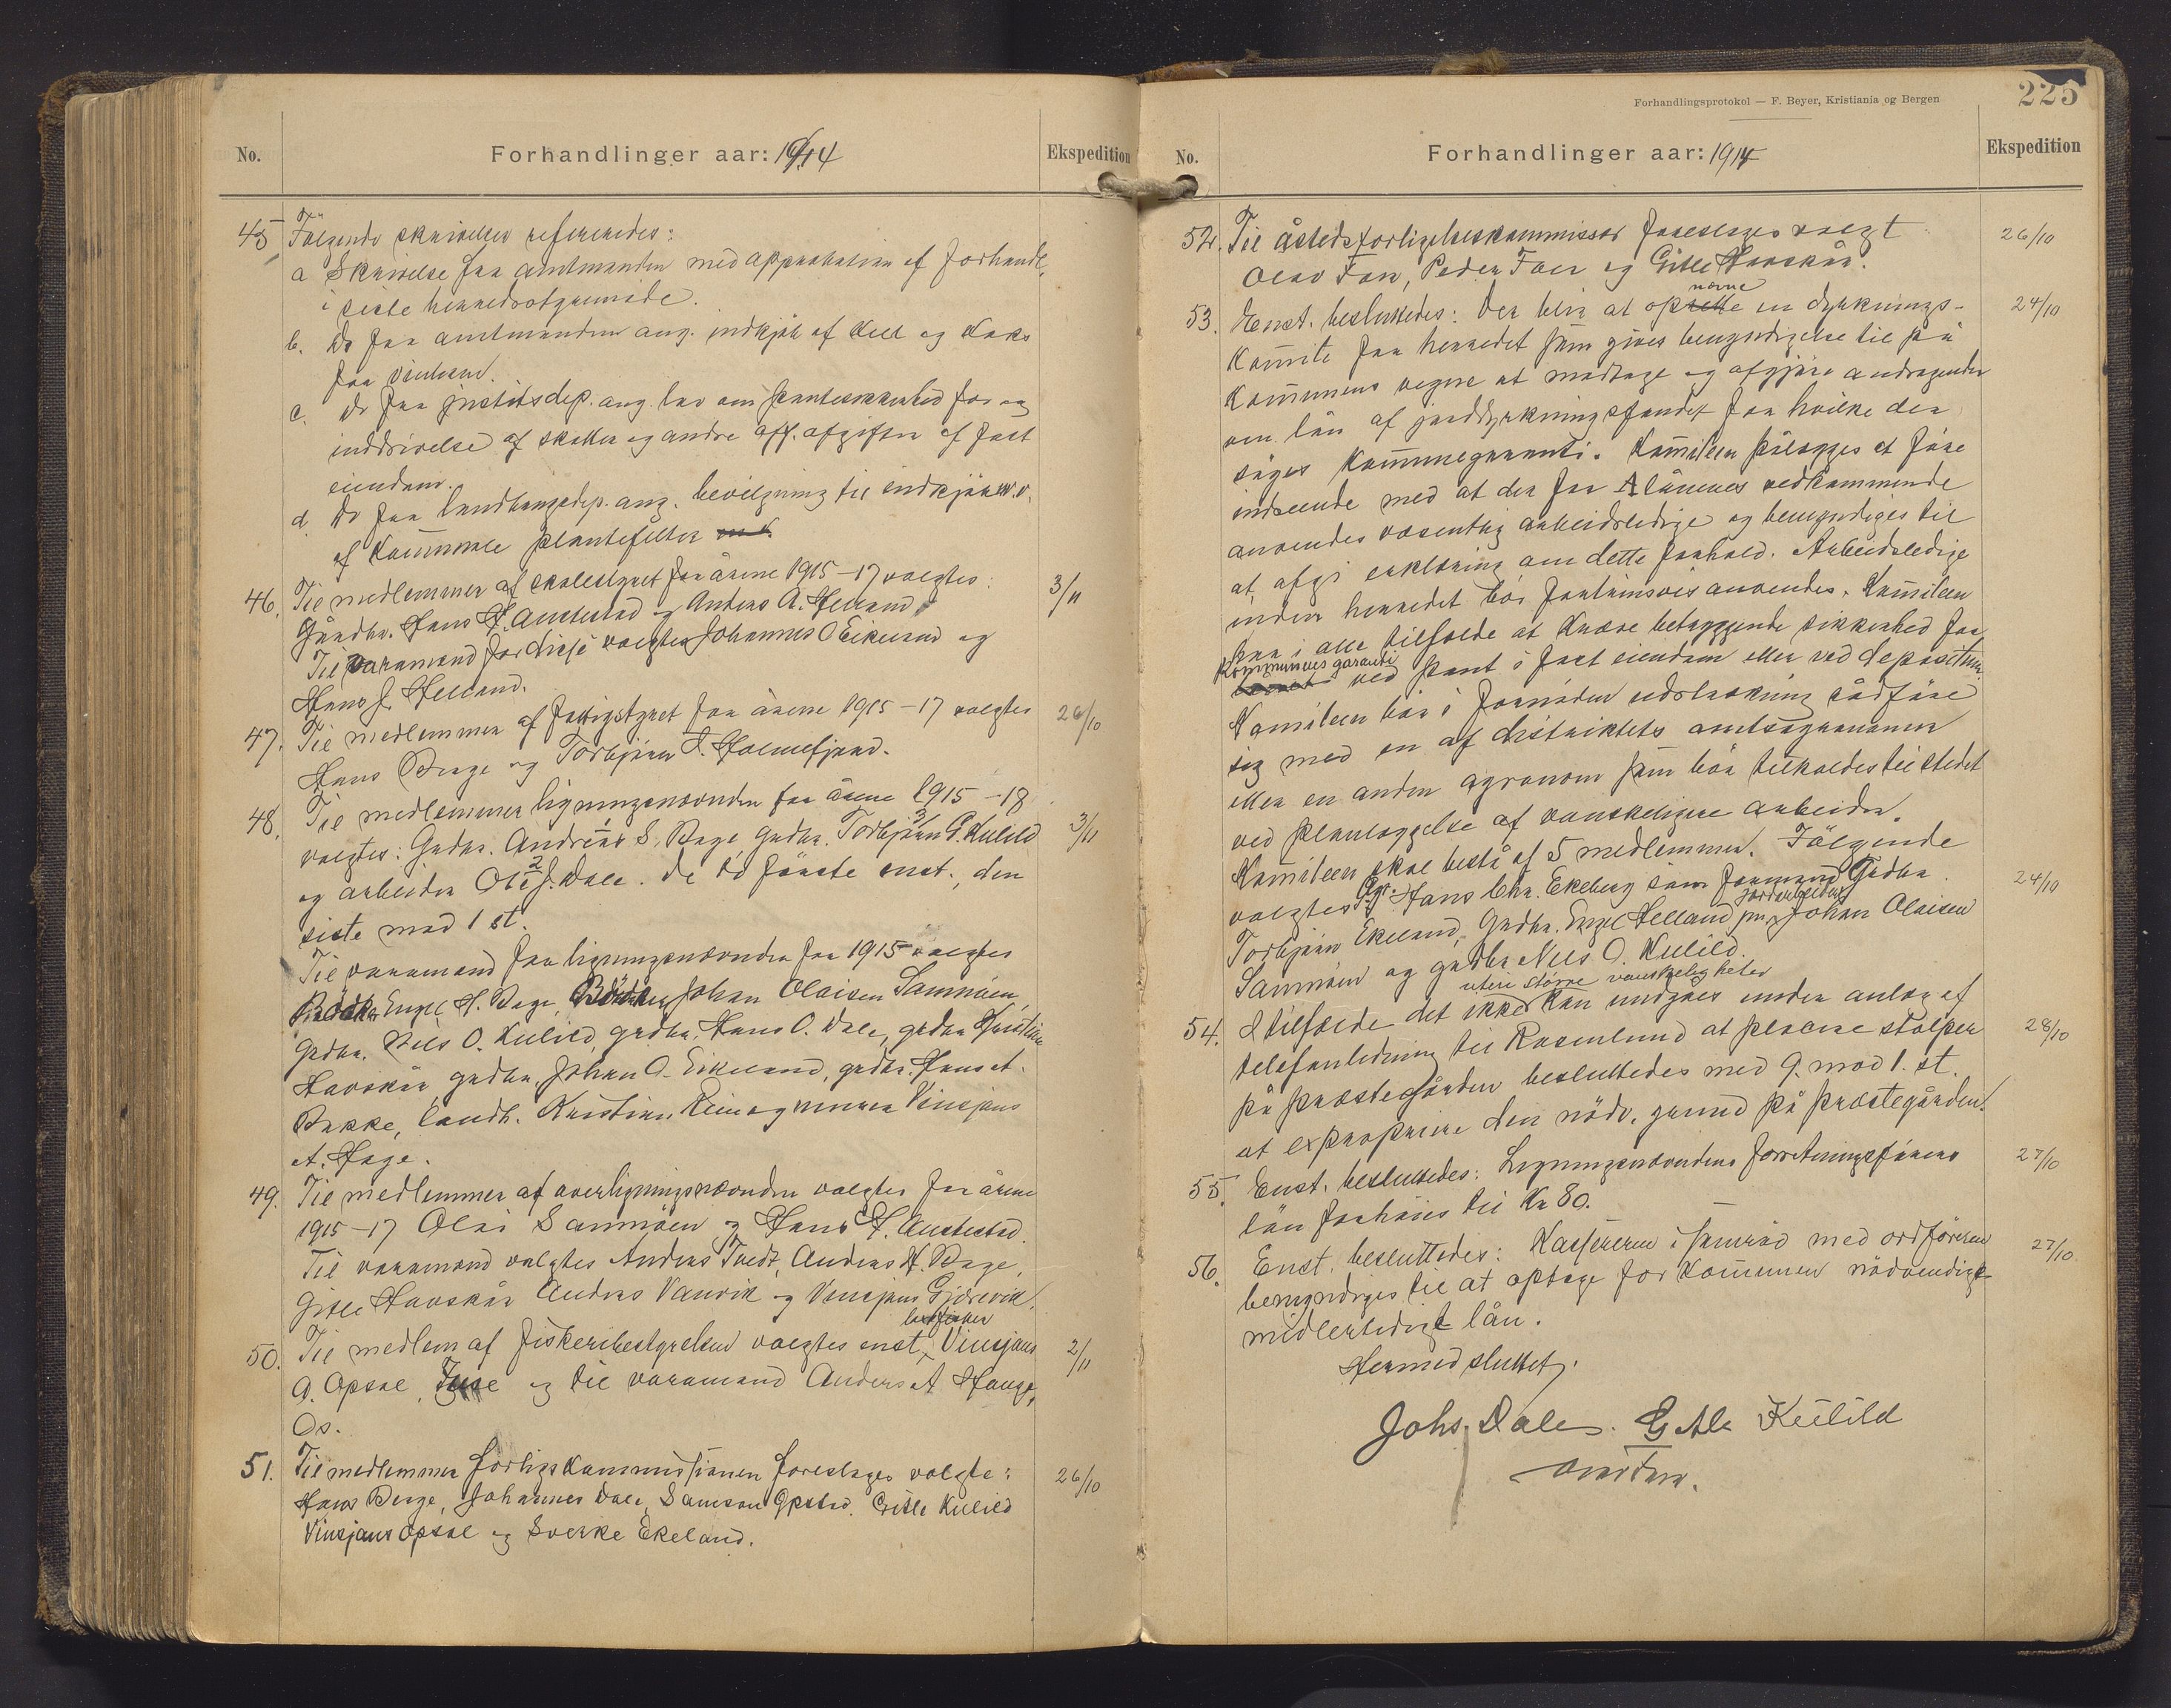 No.
Forhandlinger aar: 1914
Ekspedition
45 Følgende skrivelser refereredes:
a Skrivelse fra amtmanden med approbation af forhandl.
i siste herredsstyremøde.
b. Do fra amtmanden ang. indkjøb af kul og koks
for vinteren.
c. Do fra justitsdep. ang. lov om pantesikkerhed for og
inddrivelse af skatter og andre off. afgifter af fast
eiendom.
d Do fra landbrugsdep. ang. bevilgning til indkjøb m.v.
af kommunale plantefelter
46. Til medlemmer af skolestyret for årene 1915–17 valgtes:
Gårdbr. Hans H. Austestad og Anders A. Helland
Til varamænd for disse valgtes Johannes O Eikeland og
Hans J. Helland.
3/11
47. Til medlemmer af fattigstyret for årene 1915–17 valgtes
Hans Berge og Torbjørn J. Holmefjord.
26/10
48. Til medlemmer ligningsnævnden for årene 1915–18
valgtes: Grdbr. Andreas S. Bage Grdbr. Torbjørn G. Kulild
og arbeider Ole J. Dale. De to første enst., den
siste mod 1 st.
3/11
Til varamænd for ligningsnævnden for 1915 valgtes
Engel H. Bage, Johan Olaisen Samnøen,
Grdbr. Nils O. Kulild, grdbr. Hans O. Dale, grdbr Kristian
Havskår, grdbr. Johan O. Eikeland, grdbr. Hans A.
Bakke, landh. Kristian Reim og murer Vinsjans
A. Hage.
49. Til medlemmer af overligningsnævnden valgtes for årene
1915–17 Olai Samnøen og Hans H. Austestad.
Til varamænd valgtes Anders Tvedt, Anders H. Bage,
Gitle Havskår Anders Vanvik og Vinsjans Gjørevik.
50. Til medlem af fiskeribestyrelsen valgtes enst. Vinsjans
O. Opsal, Fuse og til varamand Anders A Hauge,
Os.
2/11
51. Til medlemmer forligskommissionen foreslages valgte:
Hans Berge, Johannes Dale, Samson Opstad. Gitle Kulild
Vinsjans Opsal og Sverke Ekeland.
26/10
Forhandlingsprotokol — F. Beyer, Kristiania og Bergen
225
No.
Forhandlinger aar: 1914
Ekspedition
52. Til åstedsforligelseskommissær foreslages valgt
Olav Fon, Peder Foer og Gitle Havskår.
26/10
53. Enst. besluttedes: Der blir at opnævne en dyrknings-
komite for herredet som gives bemyndigelse til på
kommunens vegne at modtage og afgjøre andragender
om lån af jorddyrkningsfondet for hvilke der
søges kommunegaranti. Komiteen pålægges at føre
indseende med at der for A lånenes vedkommende
anvendes væsentlig arbeidsledige og bemyndiges til
at afgi erklæring om dette forhold. Arbeidsledige
inden herredet bør fortrinsvis anvendes. Komiteen
har i alle tilfælde at kræve betryggende sikkerhed for
kommunens garanti ved pant i fast eiendom eller ved depositum.
Komiteen bør i fornøden utstrækning rådføre
sig med en af distriktets amtsagronomer
eller en anden agronom som bør tilkaldes til stedet
ved planlæggelse af vanskeligere arbeider.
Komiteen skal bestå af 5 medlemmer. Følgende
valgtes Agr. Hans Chr. Ekeberg som formand Grdbr.
Torbjørn Ekeland, Grdbr. Engel Helland jnr, jordarbeider Johan Olaisen
Samnøen og grdbr Nils O. Kulild.
24/10
24/10
54. I tilfælde det ikke uten større vanskeligheter kan undgåes under anlæg af
telefonledning til Rosenlund at placere stolper
på præstegården besluttedes med 9. mod 1. st.
at expropriere den nødv. grund på præstegården.
28/10
55. Enst. besluttedes: Ligningsnævndens forretningsførers
løn forhøies til Kr 80.
27/10
56. Enst. besluttedes: Kassereren i samråd med ordføreren
bemyndiges til at optage for kommunen nødvendigt
midlertidigt lån.
27/10
Hermed sluttet.
Johs. Dale. Gitle Kulild
Olav Fon.